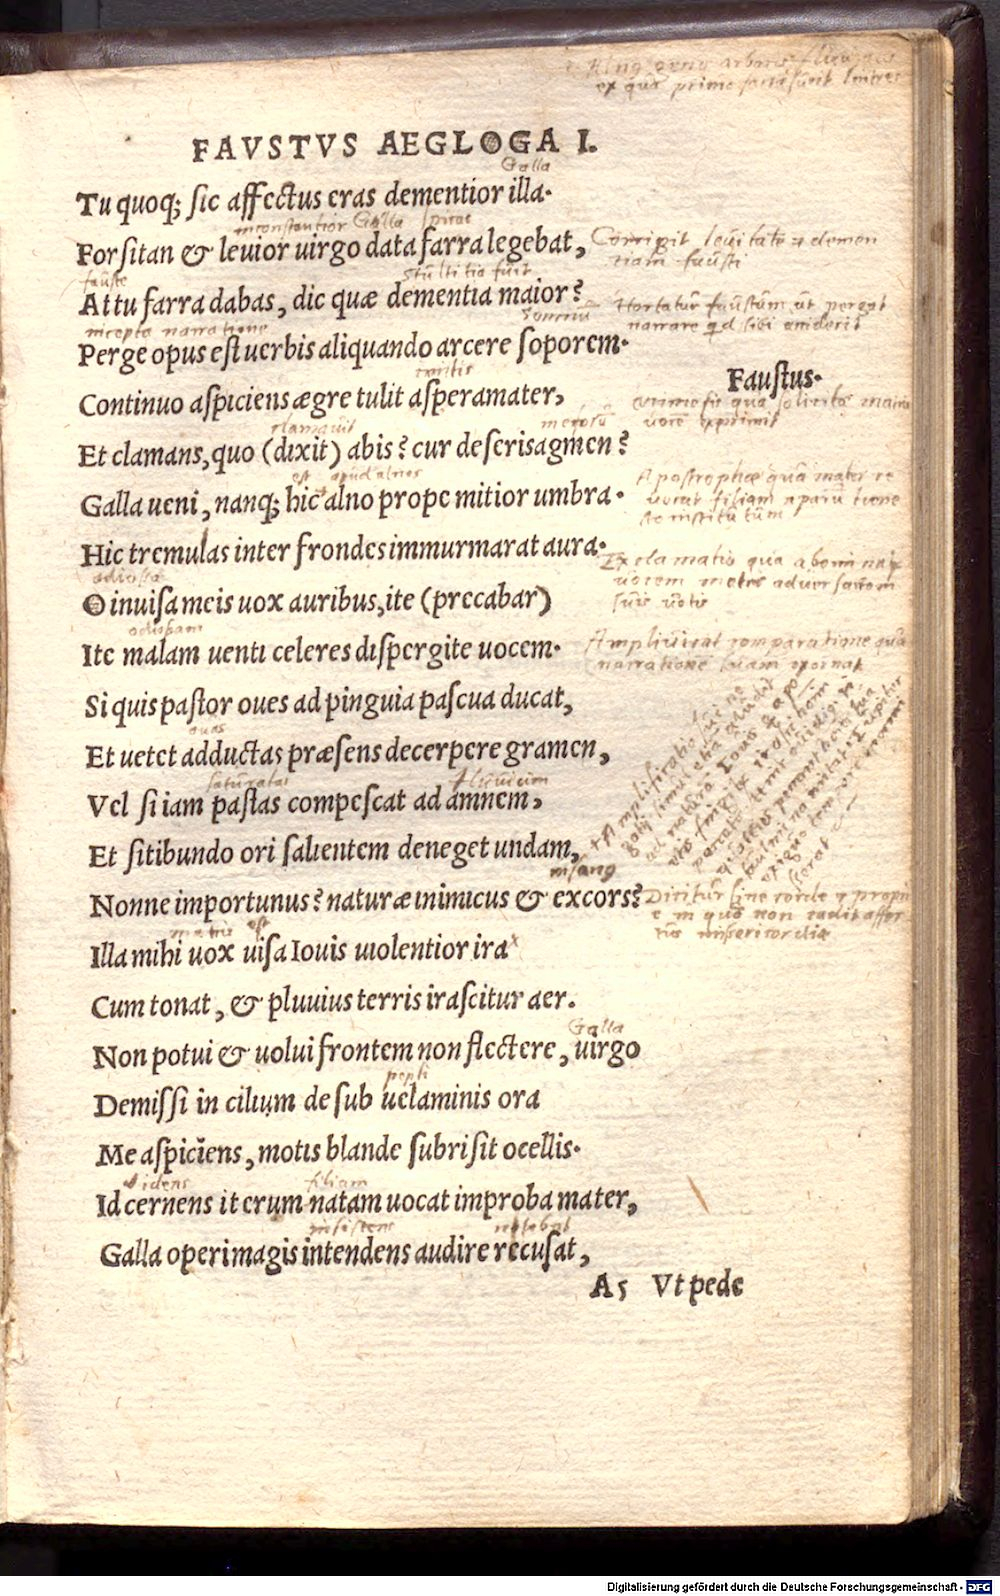 Alnus genus arboris
ex qua primo
FAVSTVS AEGLOGA I.
Galla
Tu quoq; sic affectus eras dementior illa.
inconstantior Galla spicae
Forsitan & leuior uirgo data farra legebat,
Corrigit leuitatē demen
tiam fausti
fauste
stultitia fuit
At tu farra dabas, dic quæ dementia maior?
Hortatur faustum ut pergat
narrare qd sibi
incepta narratione
somnū
Perge opus est uerbis aliquando arcere soporem.
Faustus.
Continuo aspiciens ægre tulit aspera mater,
qua
exprimit
clamauit
Et clamans, quo (dixit) abis? cur deseris agmen?
est apud alnos
Apostrophe qua mater re
uocat filiam
Galla ueni, nanq; hic alno prope mitior umbra.
Hic tremulas inter frondes immurmarat aura.
Exclamatio qua
uocem
suis uotis
odiosa
O inuisa meis uox auribus, ite (precabar)
odiosam
Ite malam uenti celeres dispergite uocem.
comparatione qua
narratione suam exornat
Si quis pastor oues ad pinguia pascua ducat,
oues
Et uetet adductas præsens decerpere gramen,
saturatas
fluuium
Vel si iam pastas compescat ad amnem,
Et sitibundo ori salientem deneget undam,
Nonne importunus? naturæ inimicus & excors?
Dicitur sine corde
in quo non cadit
misericordia
matris est
Illa mihi uox uisa Iouis uiolentior ira
Cum tonat, & pluuius terris irascitur aer.
Galla
Non potui & uolui frontem non flectere, uirgo
pepli
Demissi in cilium de sub uelaminis ora
Me aspiciens, motis blande subrisit ocellis.
uidens
filiam
Id cernens iterum natam uocat improba mater,
insistens
nolebat
Galla operi magis intendens audire recusat,
A5 Vt pede
Digitalisierung gefördert durch die Deutsche Forschungsgemeinschaft - DFG